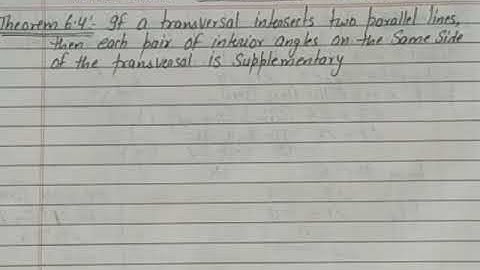 Theorem 6.4:- If a transversal intersects two parallel lines,
then each pair of interior angles on the Same Side
of the transversal is Supplementary